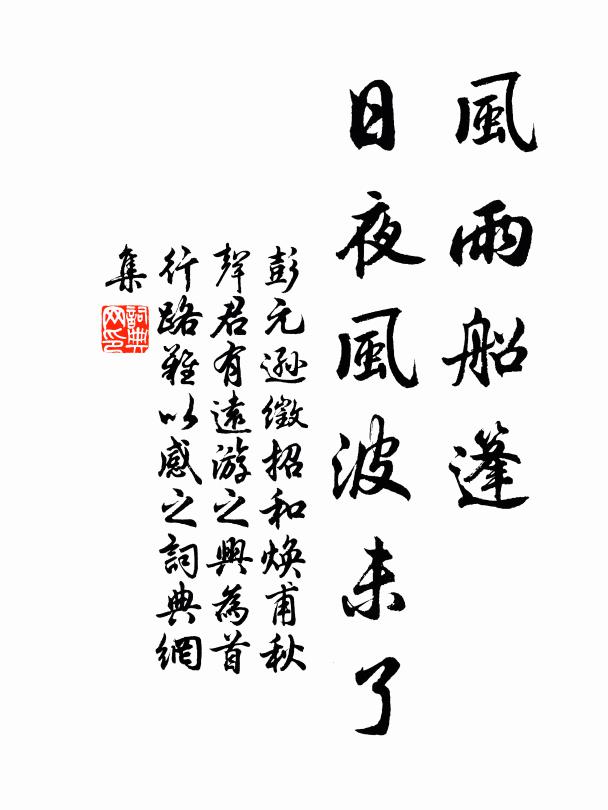 風雨船篷
日夜風波未了
彭元遜徵招和煥甫秋
聲君有遠游之興為首
行路難以感之詞典網
集
詞典
网印